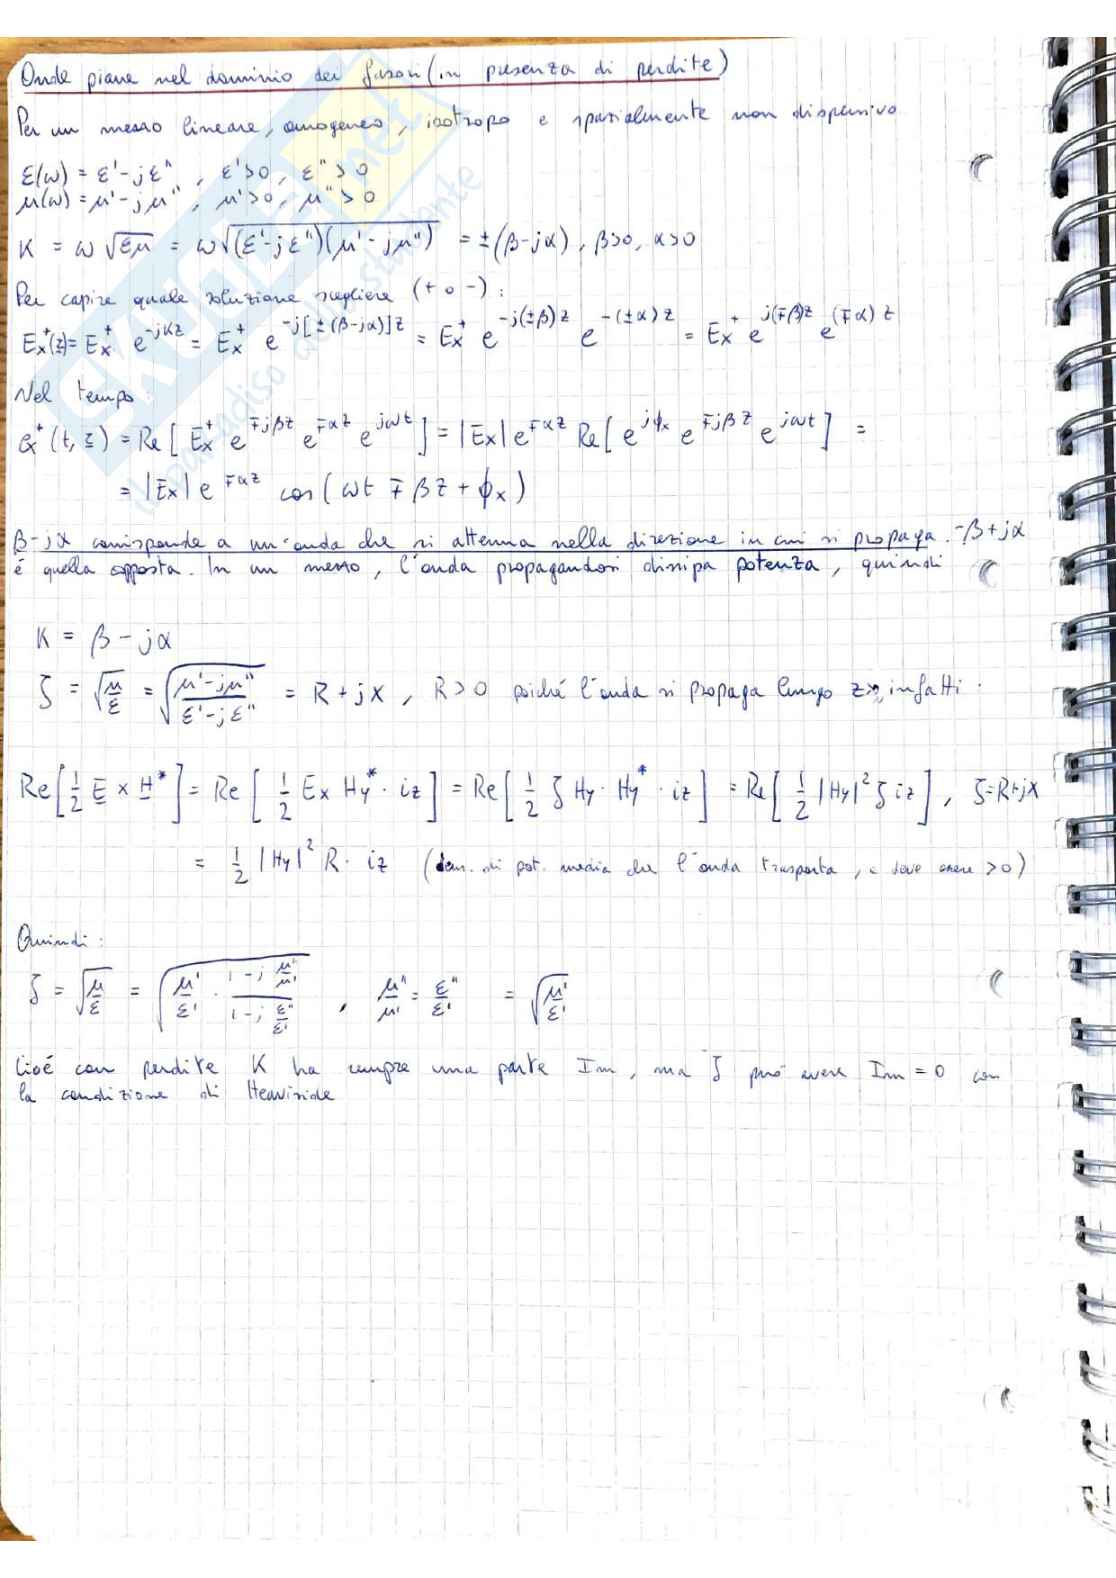 Onde piane nel dominio dei fasori (in presenza di perdite)
Per un mezzo lineare, omogeneo, isotropo e spazialmente non dispersivo
ε(ω) = ε' - jε" , ε' > 0 , ε" > 0
μ(ω) = μ' - jμ" , μ' > 0 , μ" > 0
K = ω √(εμ) = ω √((ε' - jε")(μ' - jμ")) = ± (β - jα) , β > 0 , α > 0
Per capire quale soluzione scegliere (+ o -) :
Ex⁺(z) = Ex⁺ e^(-jKz) = Ex⁺ e^(-j[±(β-jα)]z) = Ex⁺ e^(-j(±β)z) e^(-(±α)z) = Ex⁺ e^(j(∓β)z) e^((∓α)z)
Nel tempo :
ex⁺(t, z) = Re[ Ex⁺ e^(∓jβz) e^(∓αz) e^(jωt) ] = |Ex| e^(∓αz) Re[ e^(jϕx) e^(∓jβz) e^(jωt) ] =
= |Ex| e^(∓αz) cos(ωt ∓ βz + ϕx)
β - jα corrisponde a un'onda che si attenua nella direzione in cui si propaga. -β + jα
è quella opposta. In un mezzo, l'onda propagandosi dissipa potenza, quindi
K = β - jα
ζ = √(μ/ε) = √((μ' - jμ")/(ε' - jε")) = R + jX , R > 0 poiché l'onda si propaga lungo z, infatti :
Re[ 1/2 E × H* ] = Re[ 1/2 Ex Hy* · iz ] = Re[ 1/2 ζ Hy · Hy* · iz ] = Re[ 1/2 |Hy|² ζ iz ] , ζ = R + jX
= 1/2 |Hy|² R · iz (den. di pot. media che l'onda trasporta, e deve essere > 0)
Quindi :
ζ = √(μ/ε) = √(μ'/ε' · (1 - j μ"/μ')/(1 - j ε"/ε')) , μ"/μ' = ε"/ε' = √(μ'/ε')
Cioé con perdite K ha sempre una parte Im, ma ζ può avere Im = 0 con
la condizione di Heaviside
SKUOLA.net
il paradiso dello studente